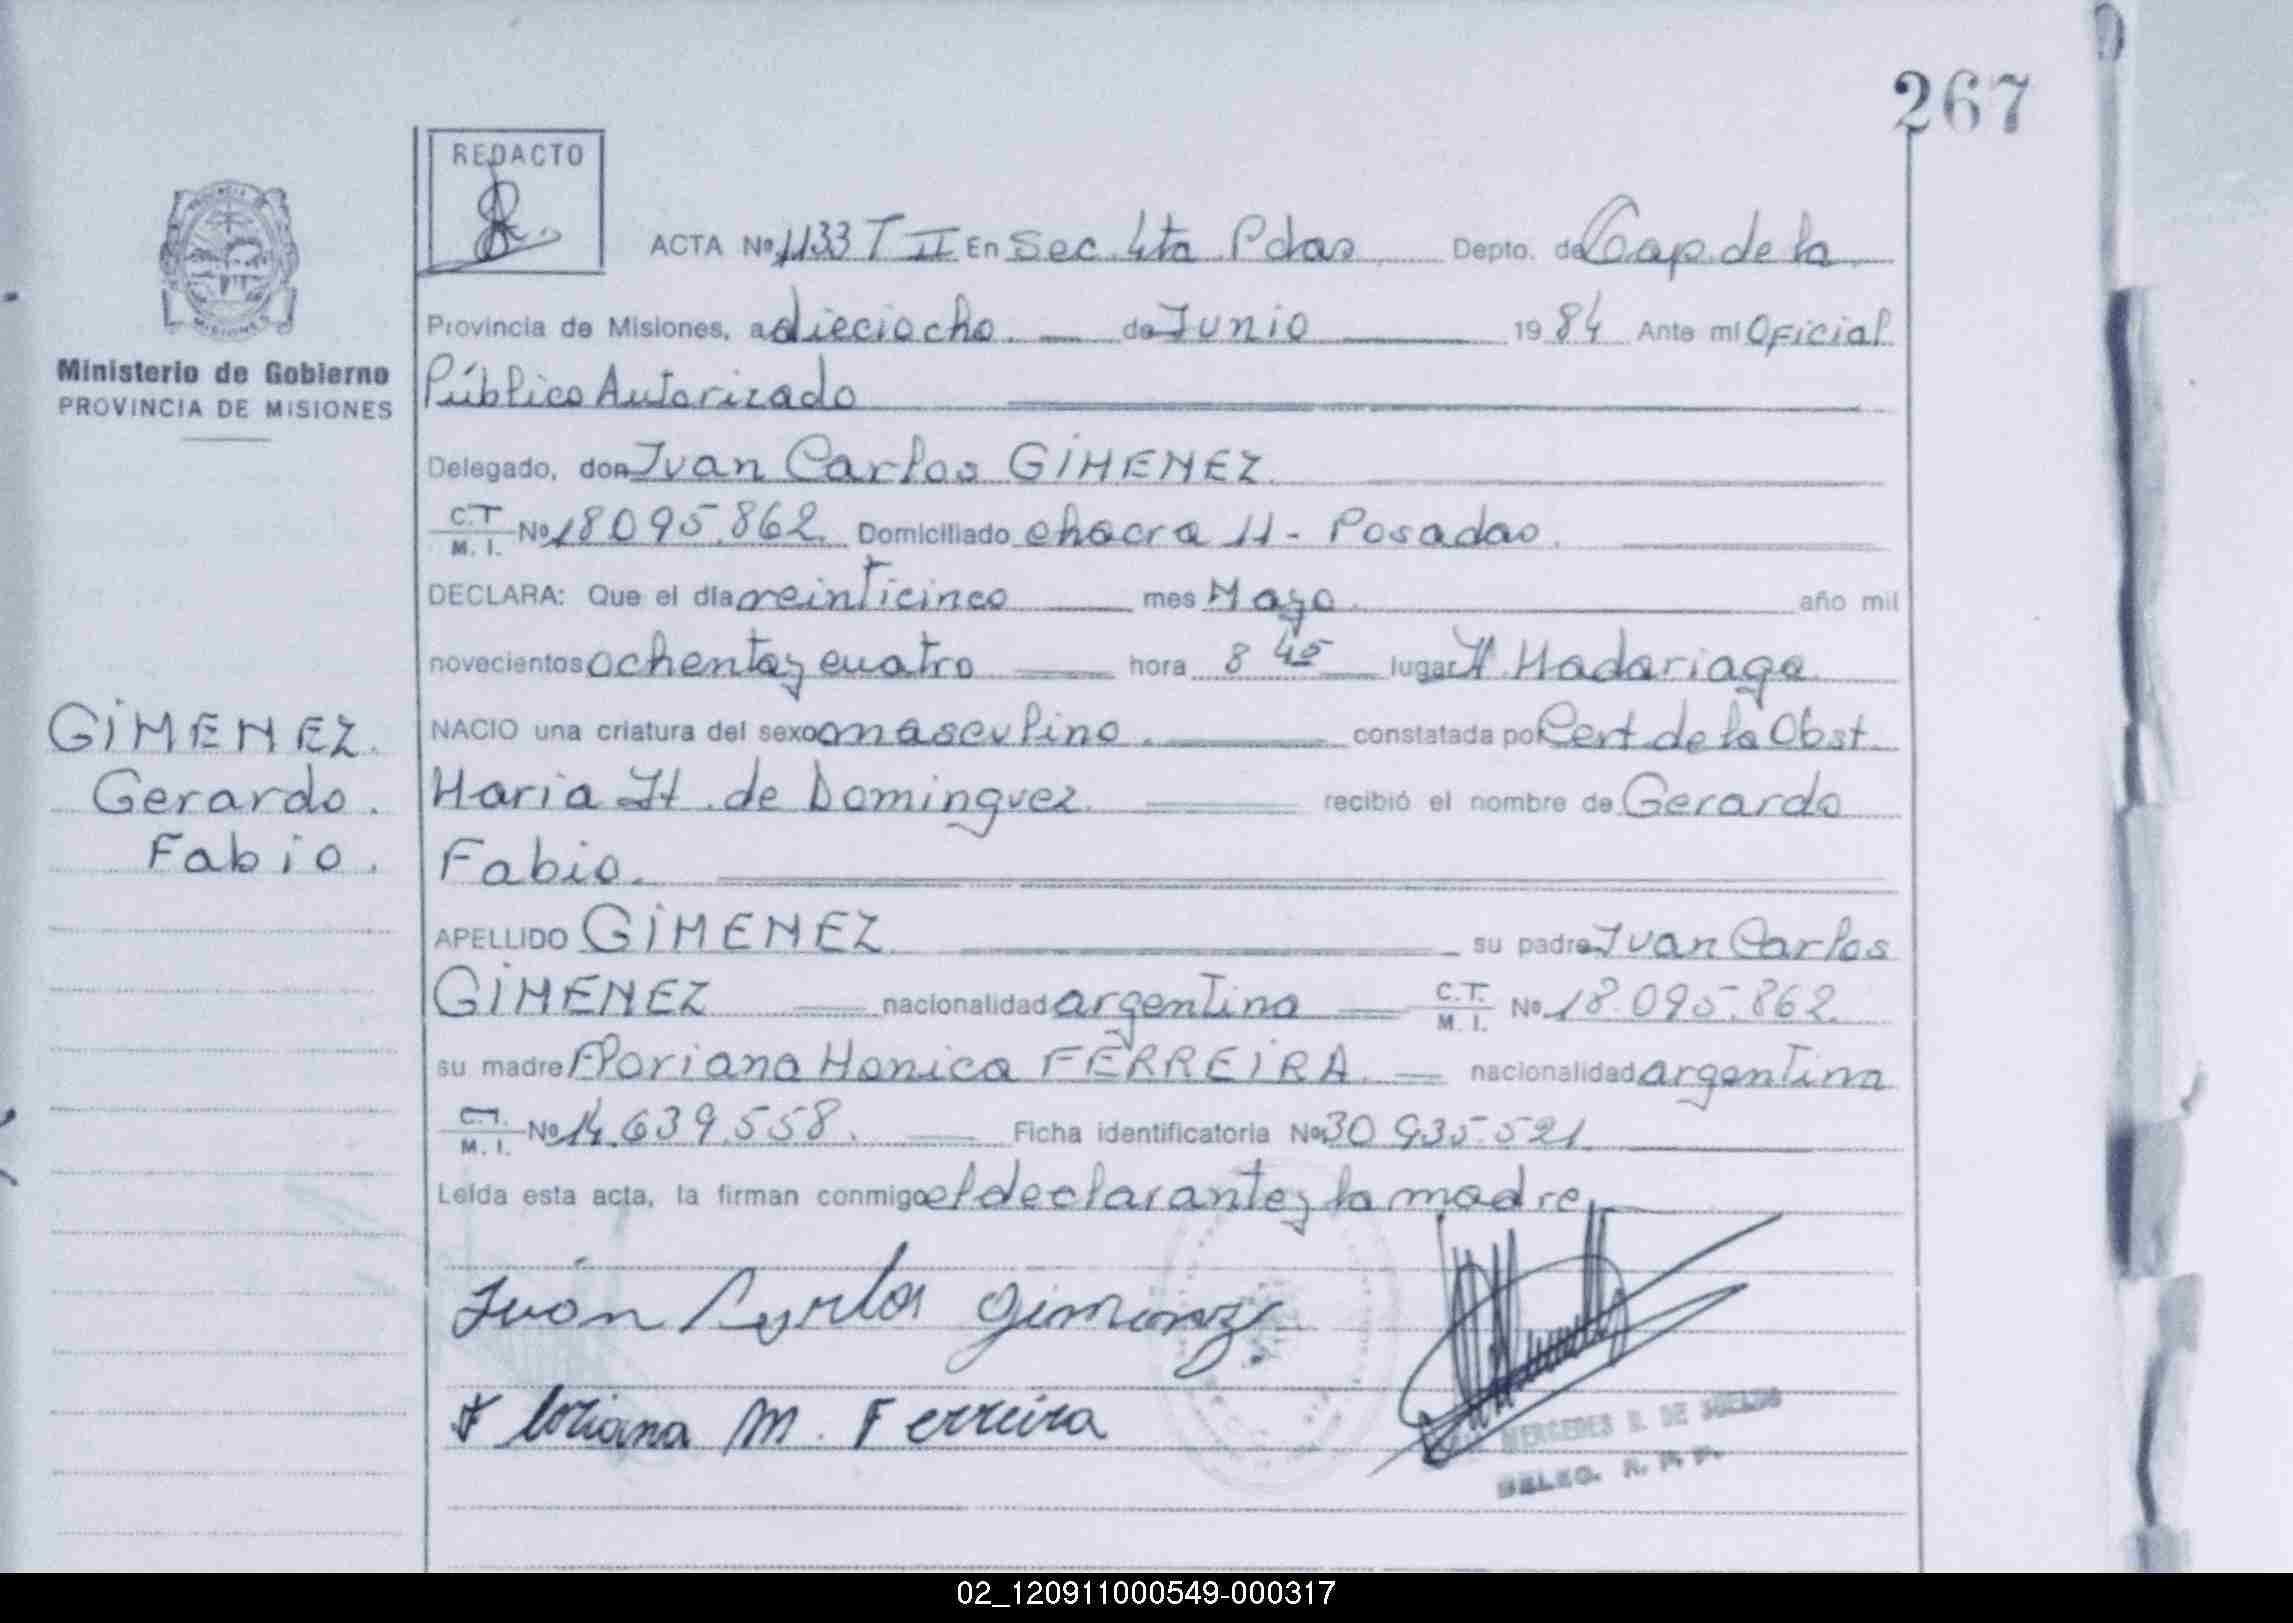 267
REDACTO
ACTA Nº 1133 T II En Sec. 4ta Pdas. Depto. de Cap. de la
Provincia de Misiones, a dieciocho de Junio 1984 Ante mí Oficial
Ministerio de Gobierno
PROVINCIA DE MISIONES
Público Autorizado
Delegado, don Juan Carlos GIMENEZ.
C.T. M. I. Nº 18.095.862 Domiciliado chacra 11 - Posadas.
DECLARA: Que el día veinticinco mes Mayo año mil
novecientos ochenta y cuatro hora 8 45 lugar H. Madariaga
GIMENEZ.
Gerardo.
Fabio.
NACIO una criatura del sexo masculino. constatada por Cert. de la Obst.
Maria H. de Dominguez recibió el nombre de Gerardo
Fabio.
APELLIDO GIMENEZ su padre Juan Carlos
GIMENEZ nacionalidad argentina C.T. M. I. Nº 18.095.862
su madre Floriana Monica FERREIRA nacionalidad argentina
C.T. M. I. Nº 14.639.558. Ficha identificatoria Nº 30.935.521
Leída esta acta, la firman conmigo el declarante y la madre
Juan Carlos Gimenez
Floriana M. Ferreira
MERCEDES DE
DELEG. R. P. P.
02_120911000549-000317